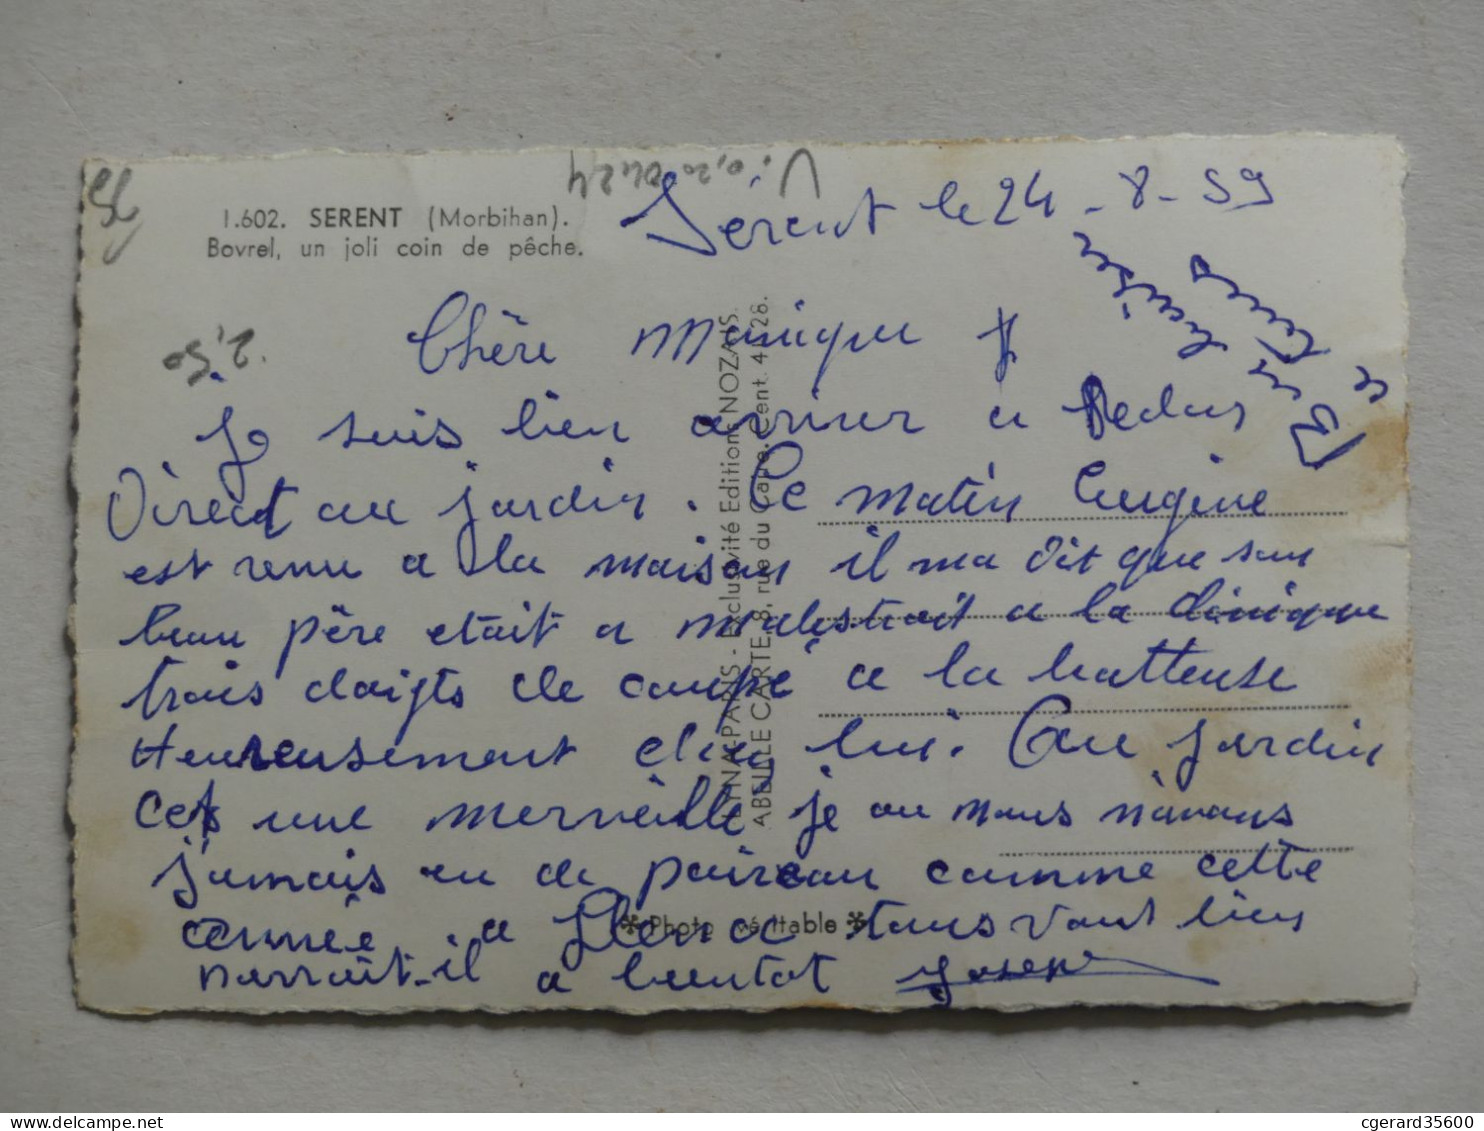 56
1.602. SERENT (Morbihan).
Bovrel, un joli coin de pêche.
Serent le 24 - 8 - 59
2.50
Chère Monique
Je suis bien arriver a Redon
Direct au jardin. Ce matin Eugène
est venu a la maison il ma dit que son
beau père etait a malestroit a la clinique
trois doigts de coupé a la batteuse
Heureusement chez lui. Au jardin
cet une merveille je ou nous n'avons
jamais eu de poireau comme cette
année a tous vont bien
a bientot Joseph
Photo véritable
LAYNAY-PARIS - Exclusivité Editions NOZAIS.
ABEILLE CARTE, 8, rue du Caire. Cent. 41-28.
ce
cgerard35600